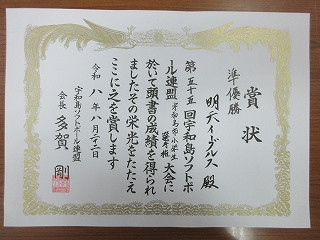 賞状
準優勝
明天イーグルス殿
第五十五回宇和島ソフトボ
ール連盟宇和島市小学生選手権大会に
於いて頭書の成績を得られ
ましたその栄光をたたえ
ここに之を賞します
令和八年八月二十二日
宇和島ソフトボール連盟
会長多賀剛